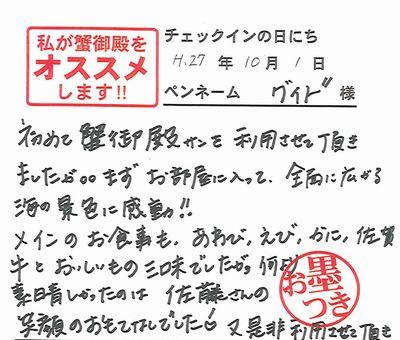 私が蟹御殿を
オススメ
します!!
チェックインの日にち
H.27年10月1日
ペンネーム グイド様
初めて蟹御殿サンを利用させて頂き
ましたが。。まずお部屋に入って、全面に広がる
海の景色に感動!!
メインのお食事も、あわび、えび、かに、佐賀
牛とおいしいもの三昧でしたが。何
素晴しかったのは 佐藤さんの
笑顔のおもてなしでした♡ 又是非利用させて頂き
お墨
つき